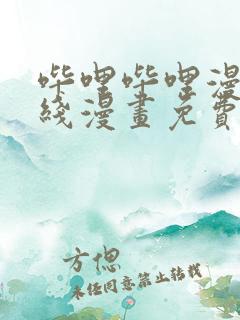 哔哩哔哩漫
线漫画免费
方偲
未经同意禁止转载